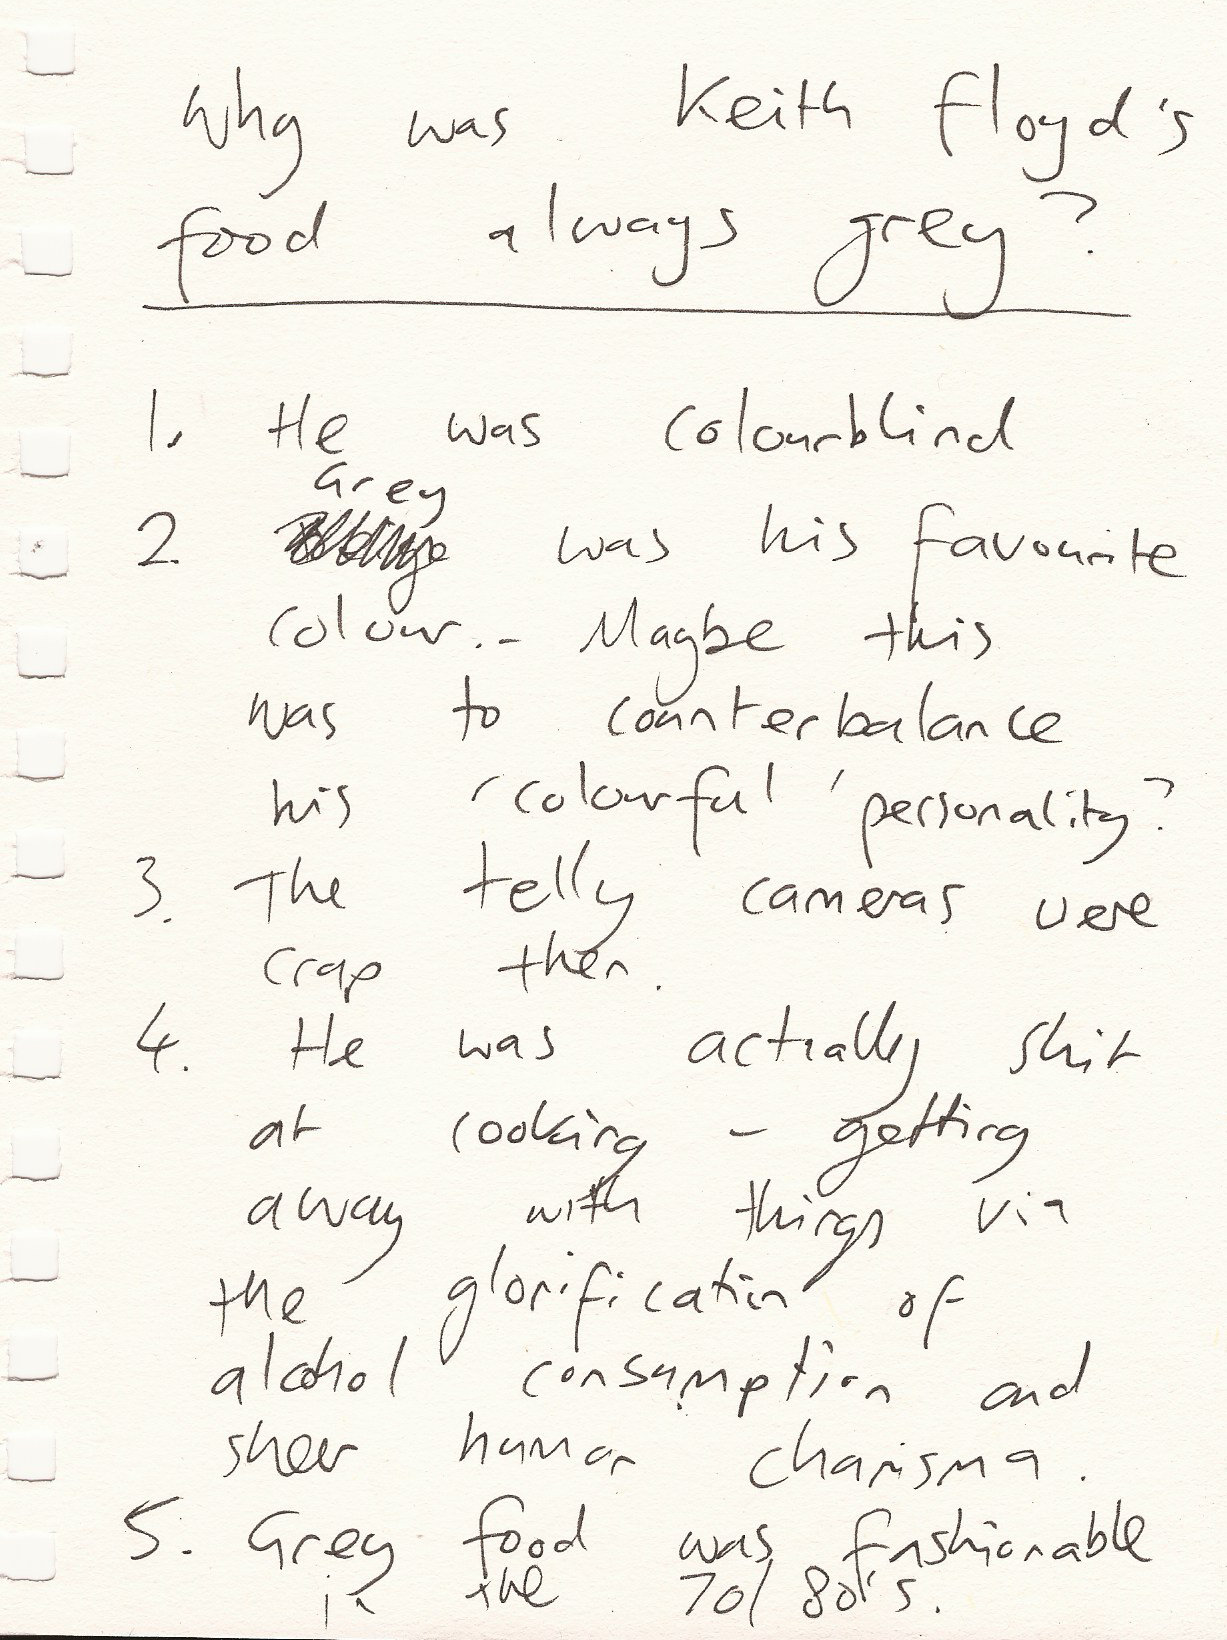 Why was Keith Floyd's
food always grey?
1. He was colourblind
Grey
2. was his favourite
colour. - Maybe this
was to counterbalance
his 'colourful' personality?
3. The telly cameras were
crap then.
4. He was actually shit
at cooking - getting
away with things via
the glorification of
alcohol consumption and
sheer human charisma.
5. Grey food was fashionable
in the 70/80's.